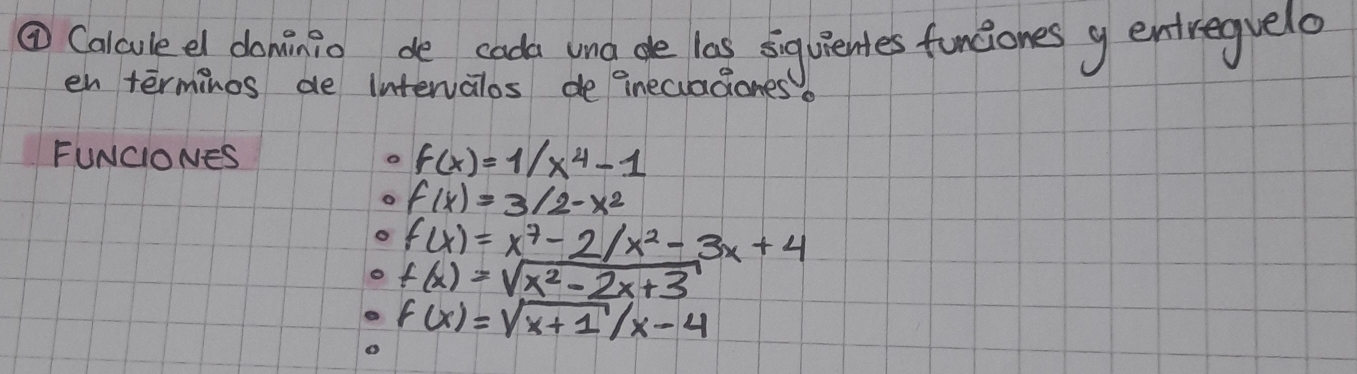 ① Calcule el dominio de cada una de las siguientes funciones y entreguelo
en términos de intervälos de inecuaciones.
FUNCIONES
• f(x) = 1/x⁴ - 1
• f(x) = 3/2 - x²
• f(x) = x⁷ - 2/x² - 3x + 4
• f(x) = √(x² - 2x + 3)
• f(x) = √(x + 1)/x - 4
•